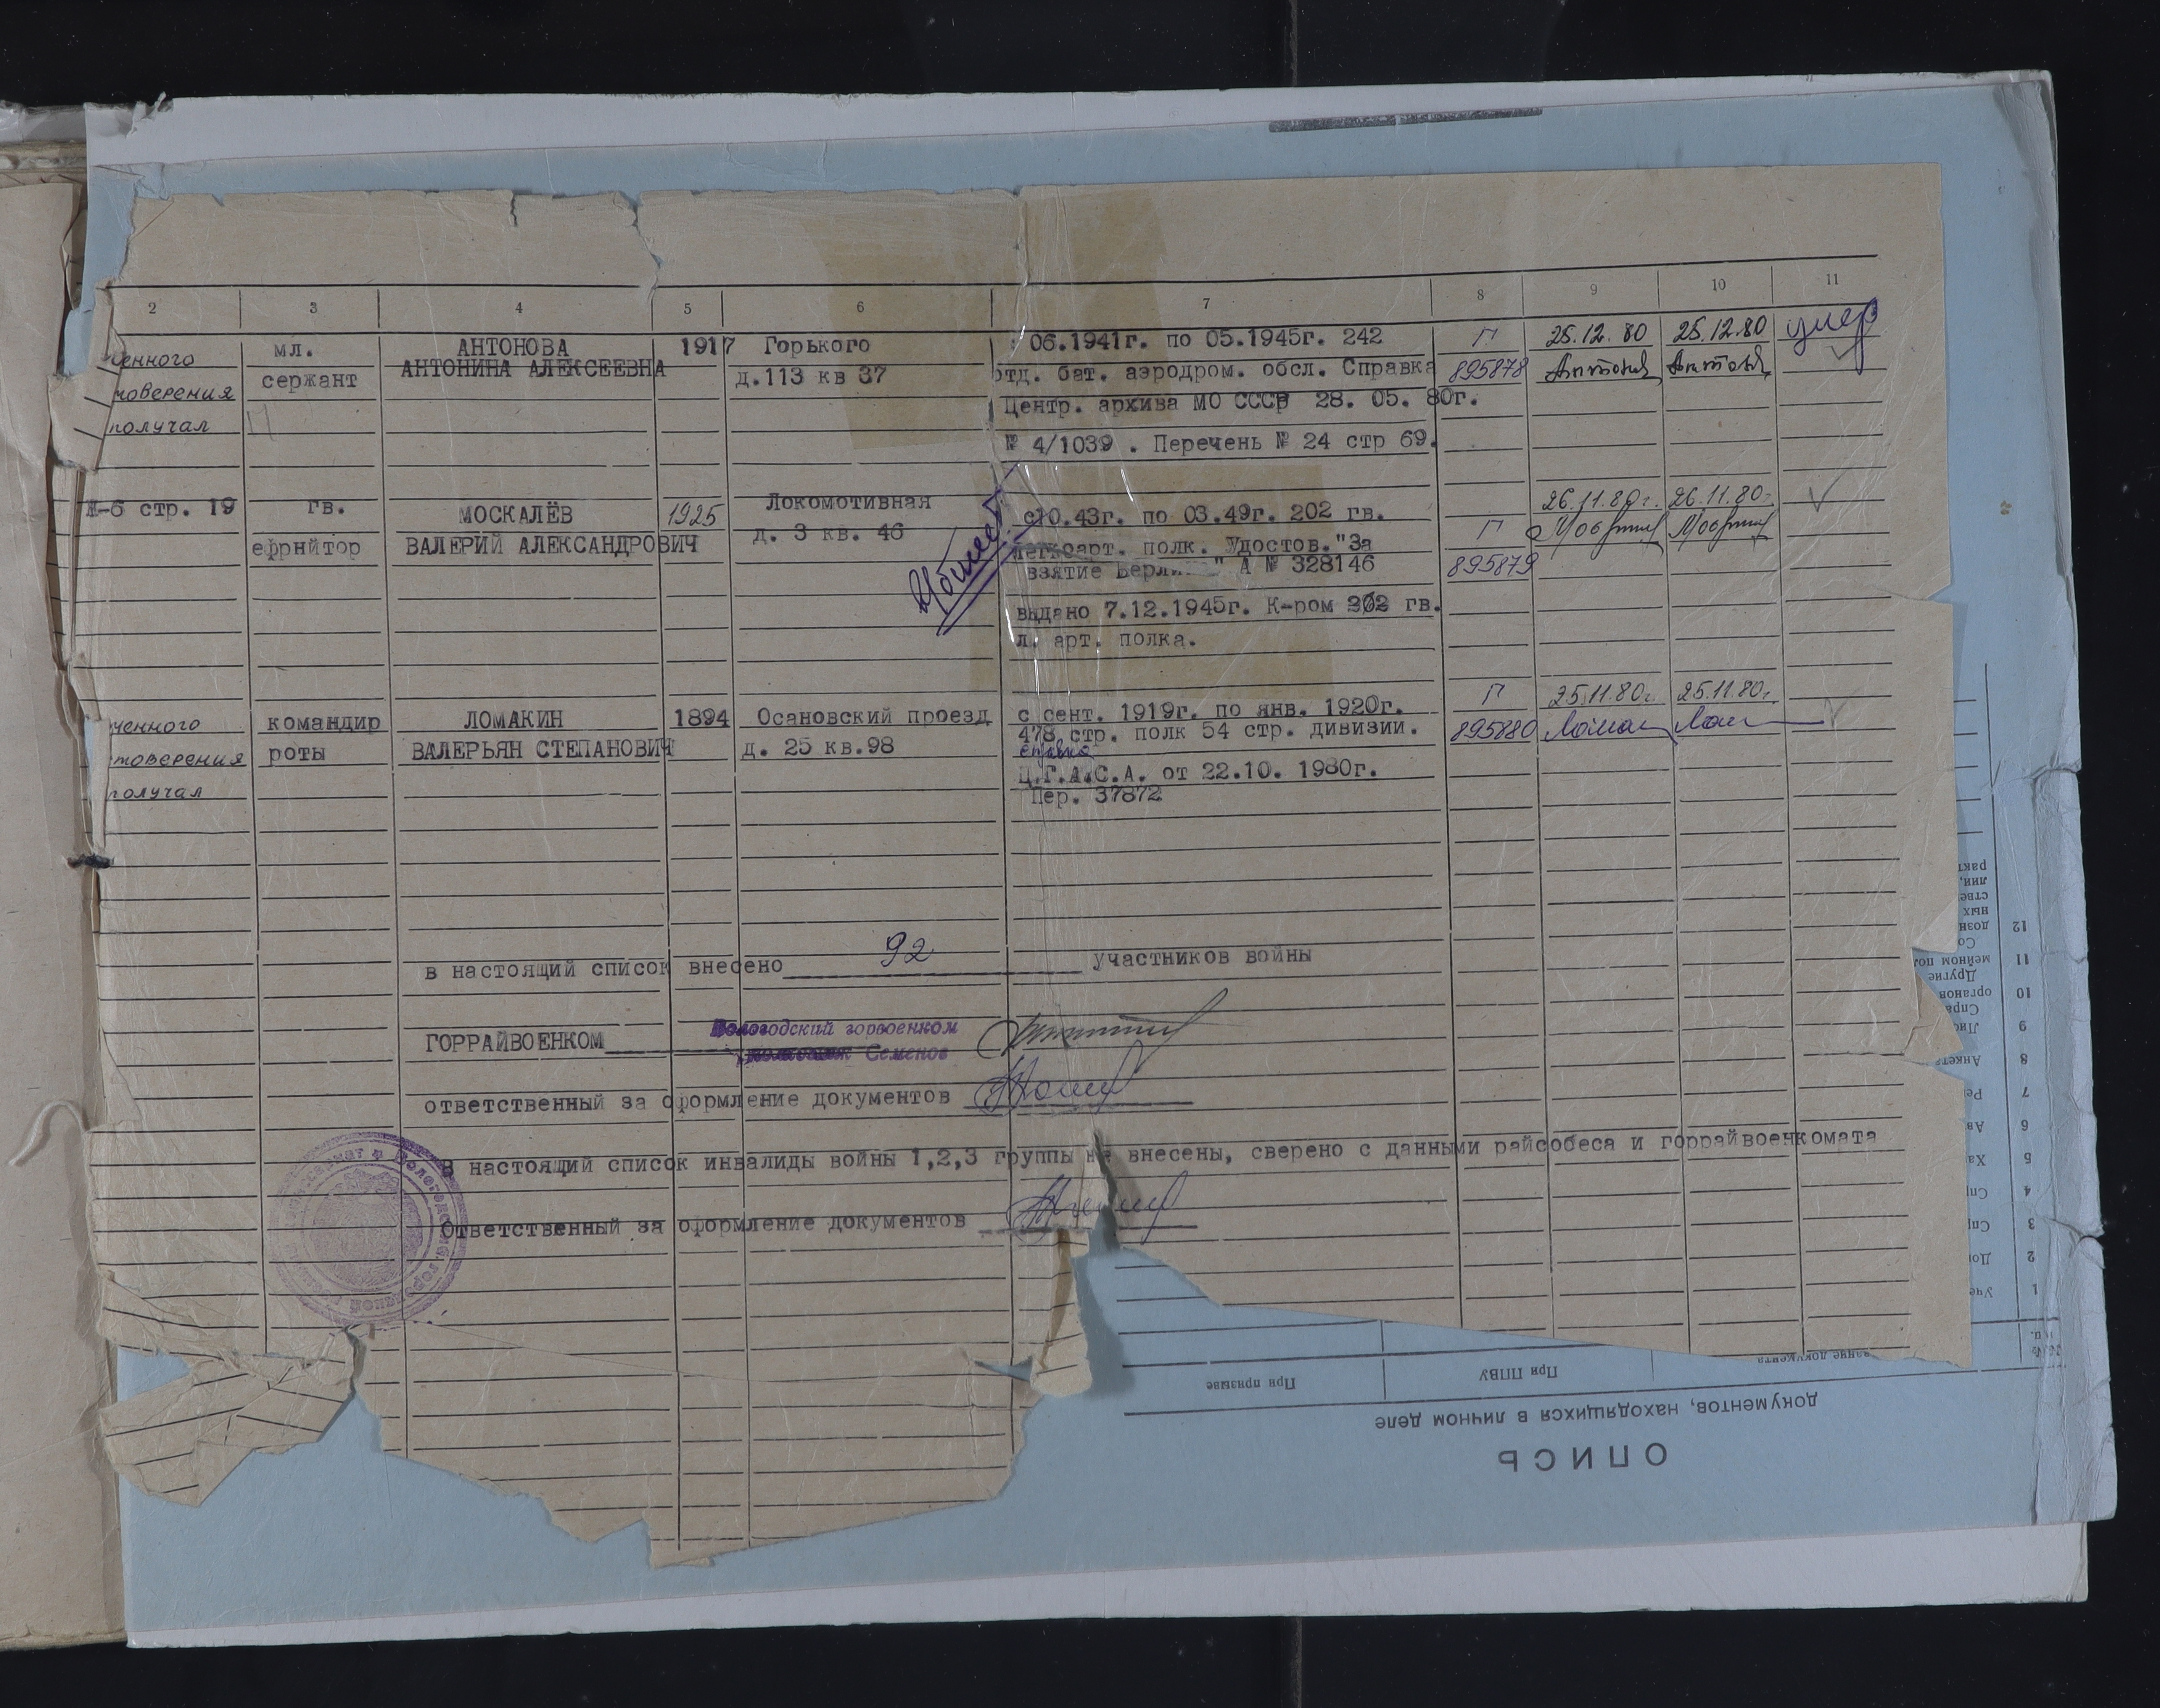 2 3 4 5 6 7 8 9 10 11
мл. АНТОНОВА 1917 Горького 06.1941г. по 05.1945г. 242 Г 25.12.80 25.12.80 умер
енного сержант АНТОНИНА АЛЕКСЕЕВНА д.113 кв 37 отд. бат. аэродром. обсл. Справка 895878
товерения Центр. архива МО СССР 28. 05. 80г.
получал № 4/1039 . Перечень № 24 стр 69.
Ж-6 стр. 19 гв. МОСКАЛЁВ 1925 Локомотивная 26.11.80г. 26.11.80г.
ефрнйтор ВАЛЕРИЙ АЛЕКСАНДРОВИЧ д. 3 кв. 46 с10.43г. по 03.49г. 202 гв. Г
легкоарт. полк. Удостов."За
взятие " А № 328146 895879
выдано 7.12.1945г. К-ром 202 гв.
л. арт. полка.
ченного командир ЛОМАКИН 1894 Осановский проезд с сент. 1919г. по янв. 1920г. Г 25.11.80г. 25.11.80г.
товерения роты ВАЛЕРЬЯН СТЕПАНОВИЧ д. 25 кв.98 478 стр. полк 54 стр. дивизии. 895880
справка
получал Ц.Г.А.С.А. от 22.10. 1980г.
Пер. 37872
в настоящий список внесено 92 участников войны
ГОРРАЙВОЕНКОМ Вологодский горвоенком
полковник Семенов
ответственный за оформление документов
В настоящий список инвалиды войны 1,2,3 группы не внесены, сверено с данными райсобеса и горрайвоенкомата
Ответственный за оформление документов
ОПИСЬ
документов, находящихся в личном деле
При ППВУ При призыве